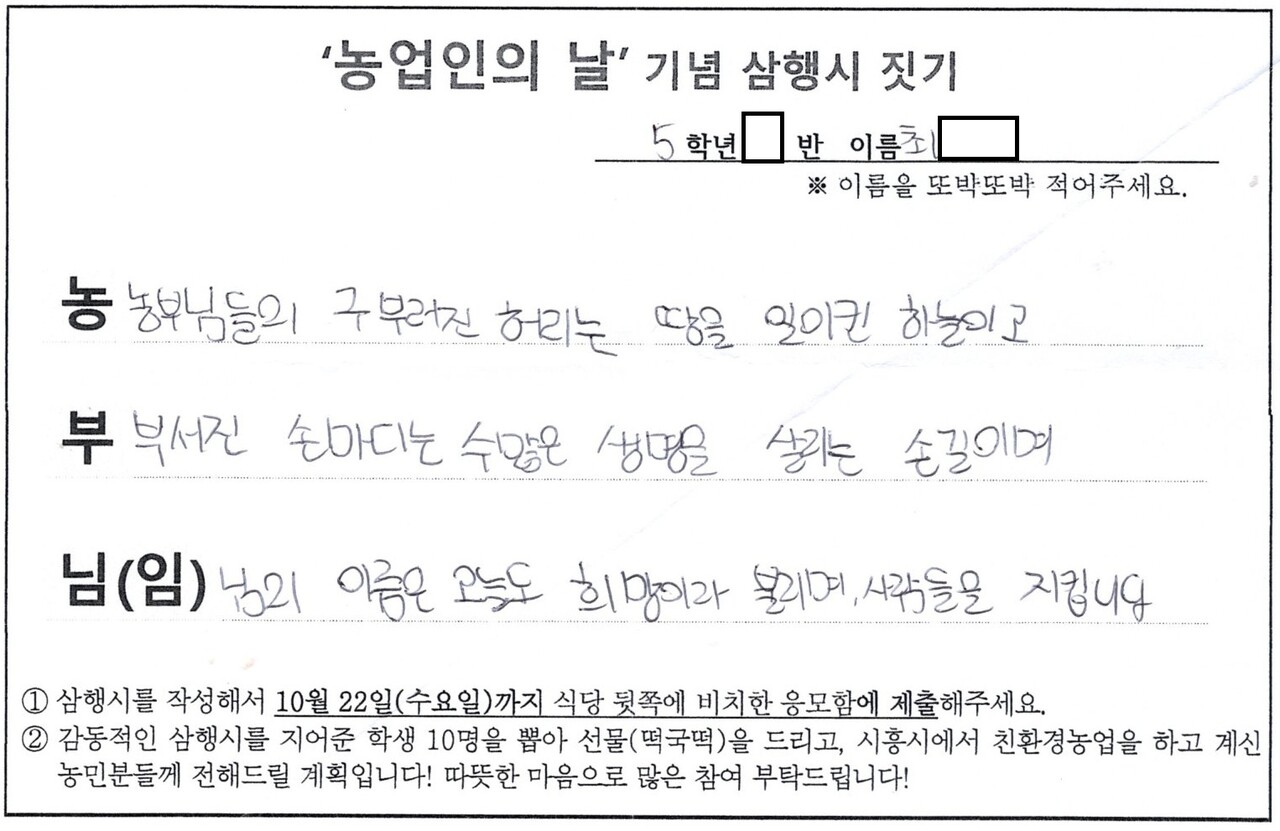 ‘농업인의 날’ 기념 삼행시 짓기
5 학년 반 이름 최
※ 이름을 또박또박 적어주세요.
농 농부님들의 구부러진 허리는 땅을 일이킨 하늘이고
부 부서진 손마디는 수많은 생명을 살리는 손길이며
님(임) 님의 이름은 오늘도 희망이라 불리며, 사람들을 지킵니다
① 삼행시를 작성해서 10월 22일(수요일)까지 식당 뒷쪽에 비치한 응모함에 제출해주세요.
② 감동적인 삼행시를 지어준 학생 10명을 뽑아 선물(떡국떡)을 드리고, 시흥시에서 친환경농업을 하고 계신
농민분들께 전해드릴 계획입니다! 따뜻한 마음으로 많은 참여 부탁드립니다!